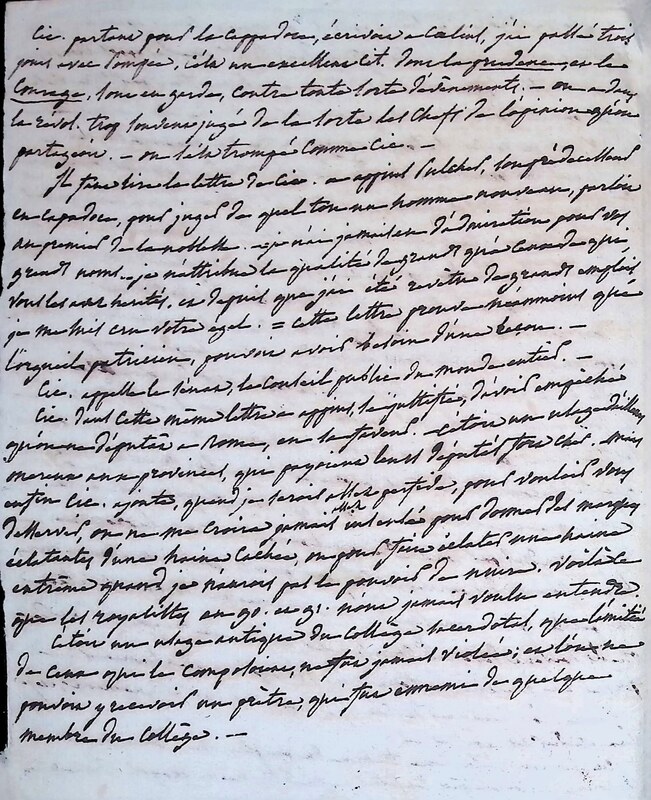 Cic. partant pour la Cappadoce, écrivoit à Cœlius, j'ai passé trois
jours avec Pompée, c'est un excellent cit. dont la prudence et le
courage, sont en garde, contre toute sorte d'évènements. — on a dans
la révol. trop souvent jugé de la sorte les chefs de l'opinion qu'on
partageoit. — on s'est trompé comme Cic. —
Il faut lire la lettre de Cic. à appius Pulcher, son prédécesseur
en Capadoce, pour juger de quel ton un homme nouveau, parloit
au premier de la noblesse. — je n'ai jamais eu d'admiration pour vos
grands noms. — je n'attribue la qualité de grands qu'à ceux de qui
vous les avez hérités, et depuis que j'ai été revêtu de grands emplois
je me suis cru votre egal. = cette lettre prouve néanmoins que
l'orgueil patricien, pouvoit avoir besoin d'une leçon. —
Cic. appelle le sénat, le conseil public du monde entier. —
Cic. dans cette même lettre à appius, se justifie, d'avoir empêché
qu'on ne députât à Rome, en sa faveur. — c'étoit un usage
onéreux aux provinces, qui payoient leurs députés fort cher. mais
enfin Cic. ajoute, quand je serois assez perfide, pour vouloir vous
desservir, on ne me croira jamais assez insensé pour donner des marques
éclatantes d'une haine cachée, ou pour faire éclater une haine
extrême quand je n'aurois pas le pouvoir de nuire. voilà ce
que les royalistes, en 90. et 91. n'ont jamais voulu entendre.
C'étoit un usage antique du collège sacerdotal, que l'amitié
de ceux qui le composoient, ne fut jamais violée, et l'on ne
pouvoit y recevoir un prêtre, qui fut ennemi de quelque
membre du collège. —